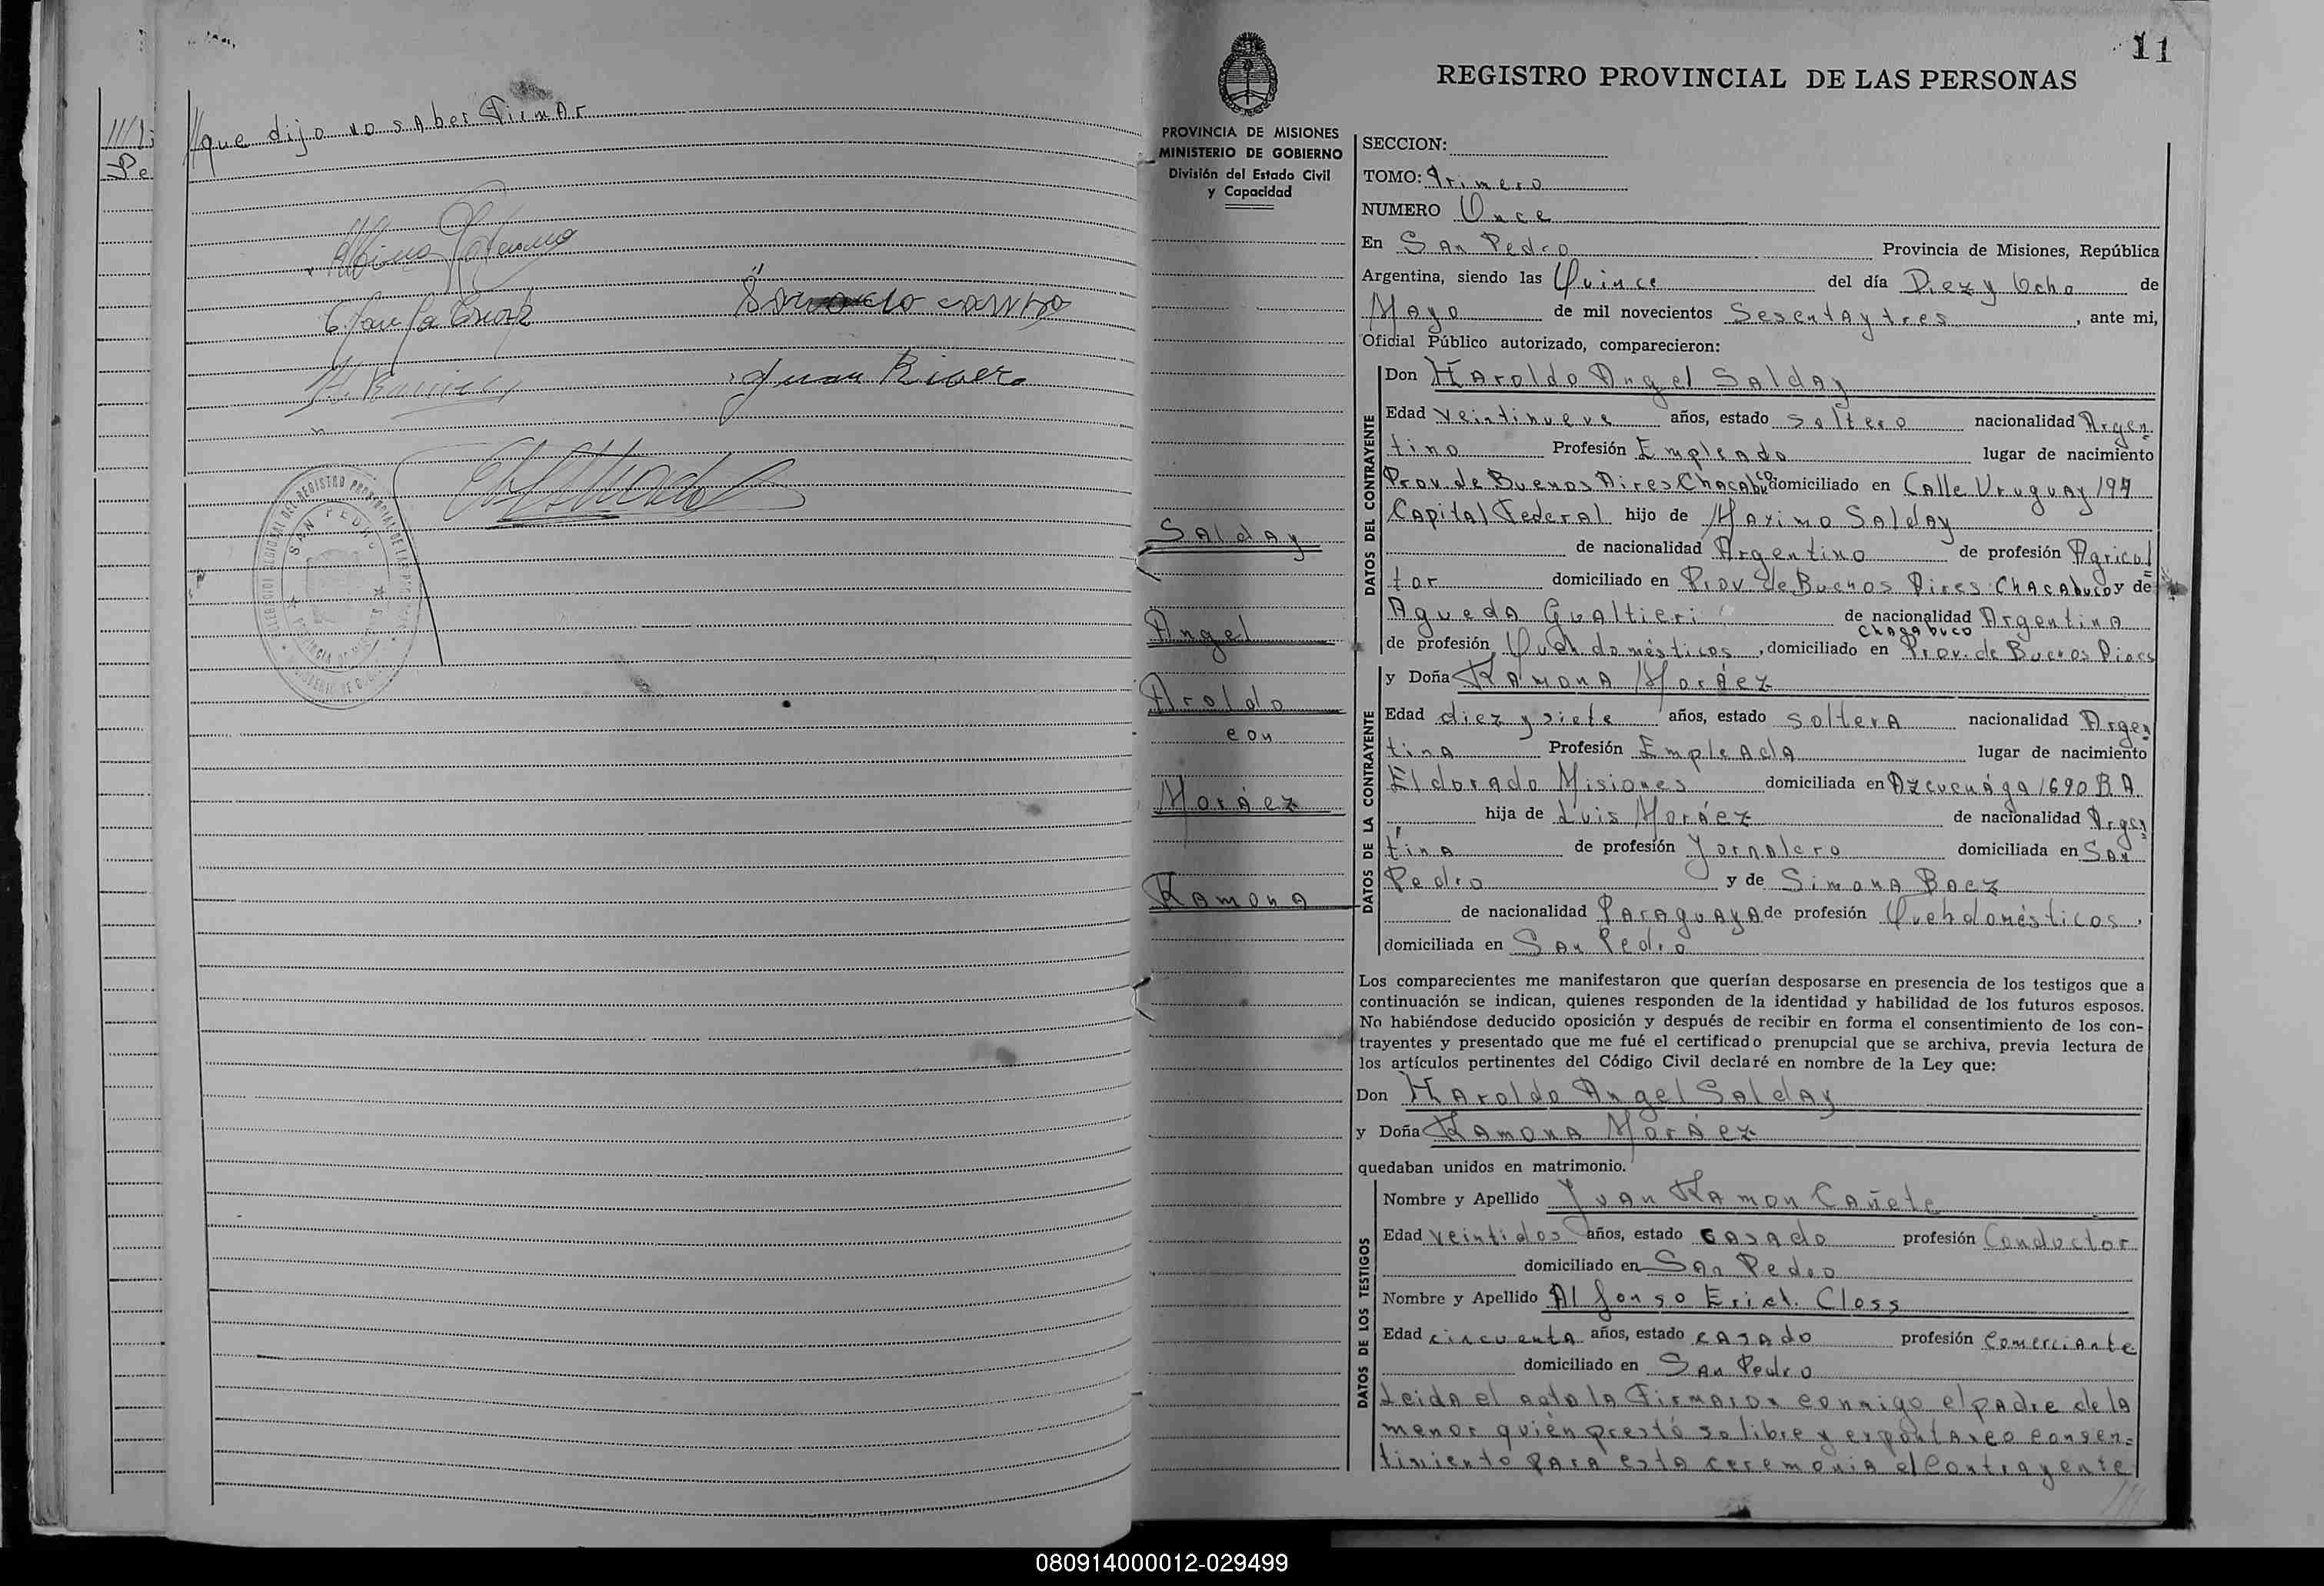 //que dijo no saber Firmar
Juan Rivero
SAN PEDRO
11
REGISTRO PROVINCIAL DE LAS PERSONAS
PROVINCIA DE MISIONES
MINISTERIO DE GOBIERNO
División del Estado Civil
y Capacidad
Salday
Angel
Aroldo
con
Moráez
Ramona
SECCION:
TOMO: Primero
NUMERO Once
En San Pedro Provincia de Misiones, República
Argentina, siendo las Quince del día Diez y Ocho de
Mayo de mil novecientos Sesentaytres, ante mi,
Oficial Público autorizado, comparecieron:
DATOS DEL CONTRAYENTE
Don Haroldo Angel Salday
Edad veintinueve años, estado soltero nacionalidad Argen=
tino Profesión Empleado lugar de nacimiento
Prov. de Buenos Aires Chacabuco domiciliado en Calle Uruguay 194
Capital Federal hijo de Maximo Salday
de nacionalidad Argentino de profesión Agricul=
tor domiciliado en Prov. de Buenos Aires Chacabuco y de
Agueda Gualtieri de nacionalidad Argentina
de profesión Queh domésticos, domiciliado en Chacabuco Prov. de Buenos Aires
DATOS DE LA CONTRAYENTE
y Doña Ramona Moráez
Edad diez y siete años, estado soltera nacionalidad Argen=
tina Profesión Empleada lugar de nacimiento
Eldorado Misiones domiciliada en Azcuenága 1690 B A.
hija de Luis Moráez de nacionalidad Argen=
tina de profesión Jornalero domiciliada en San
Pedro y de Simona Baez
de nacionalidad Paraguaya de profesión Queh domésticos,
domiciliada en San Pedro
Los comparecientes me manifestaron que querían desposarse en presencia de los testigos que a
continuación se indican, quienes responden de la identidad y habilidad de los futuros esposos.
No habiéndose deducido oposición y después de recibir en forma el consentimiento de los con-
trayentes y presentado que me fué el certificado prenupcial que se archiva, previa lectura de
los artículos pertinentes del Código Civil declaré en nombre de la Ley que:
Don Haroldo Angel Salday
y Doña Ramona Moráez
quedaban unidos en matrimonio.
DATOS DE LOS TESTIGOS
Nombre y Apellido Juan Ramon Cañete
Edad veintidos años, estado casado profesión Conductor
domiciliado en San Pedro
Nombre y Apellido Alfonso Erict. Closs
Edad cincuenta años, estado casado profesión comerciante
domiciliado en San Pedro
Leida el acta la Firmaron conmigo el padre de la
menor quién prestó so libre y expontaneo consen=
timiento para esta ceremonia el contrayente
///
080914000012-029499